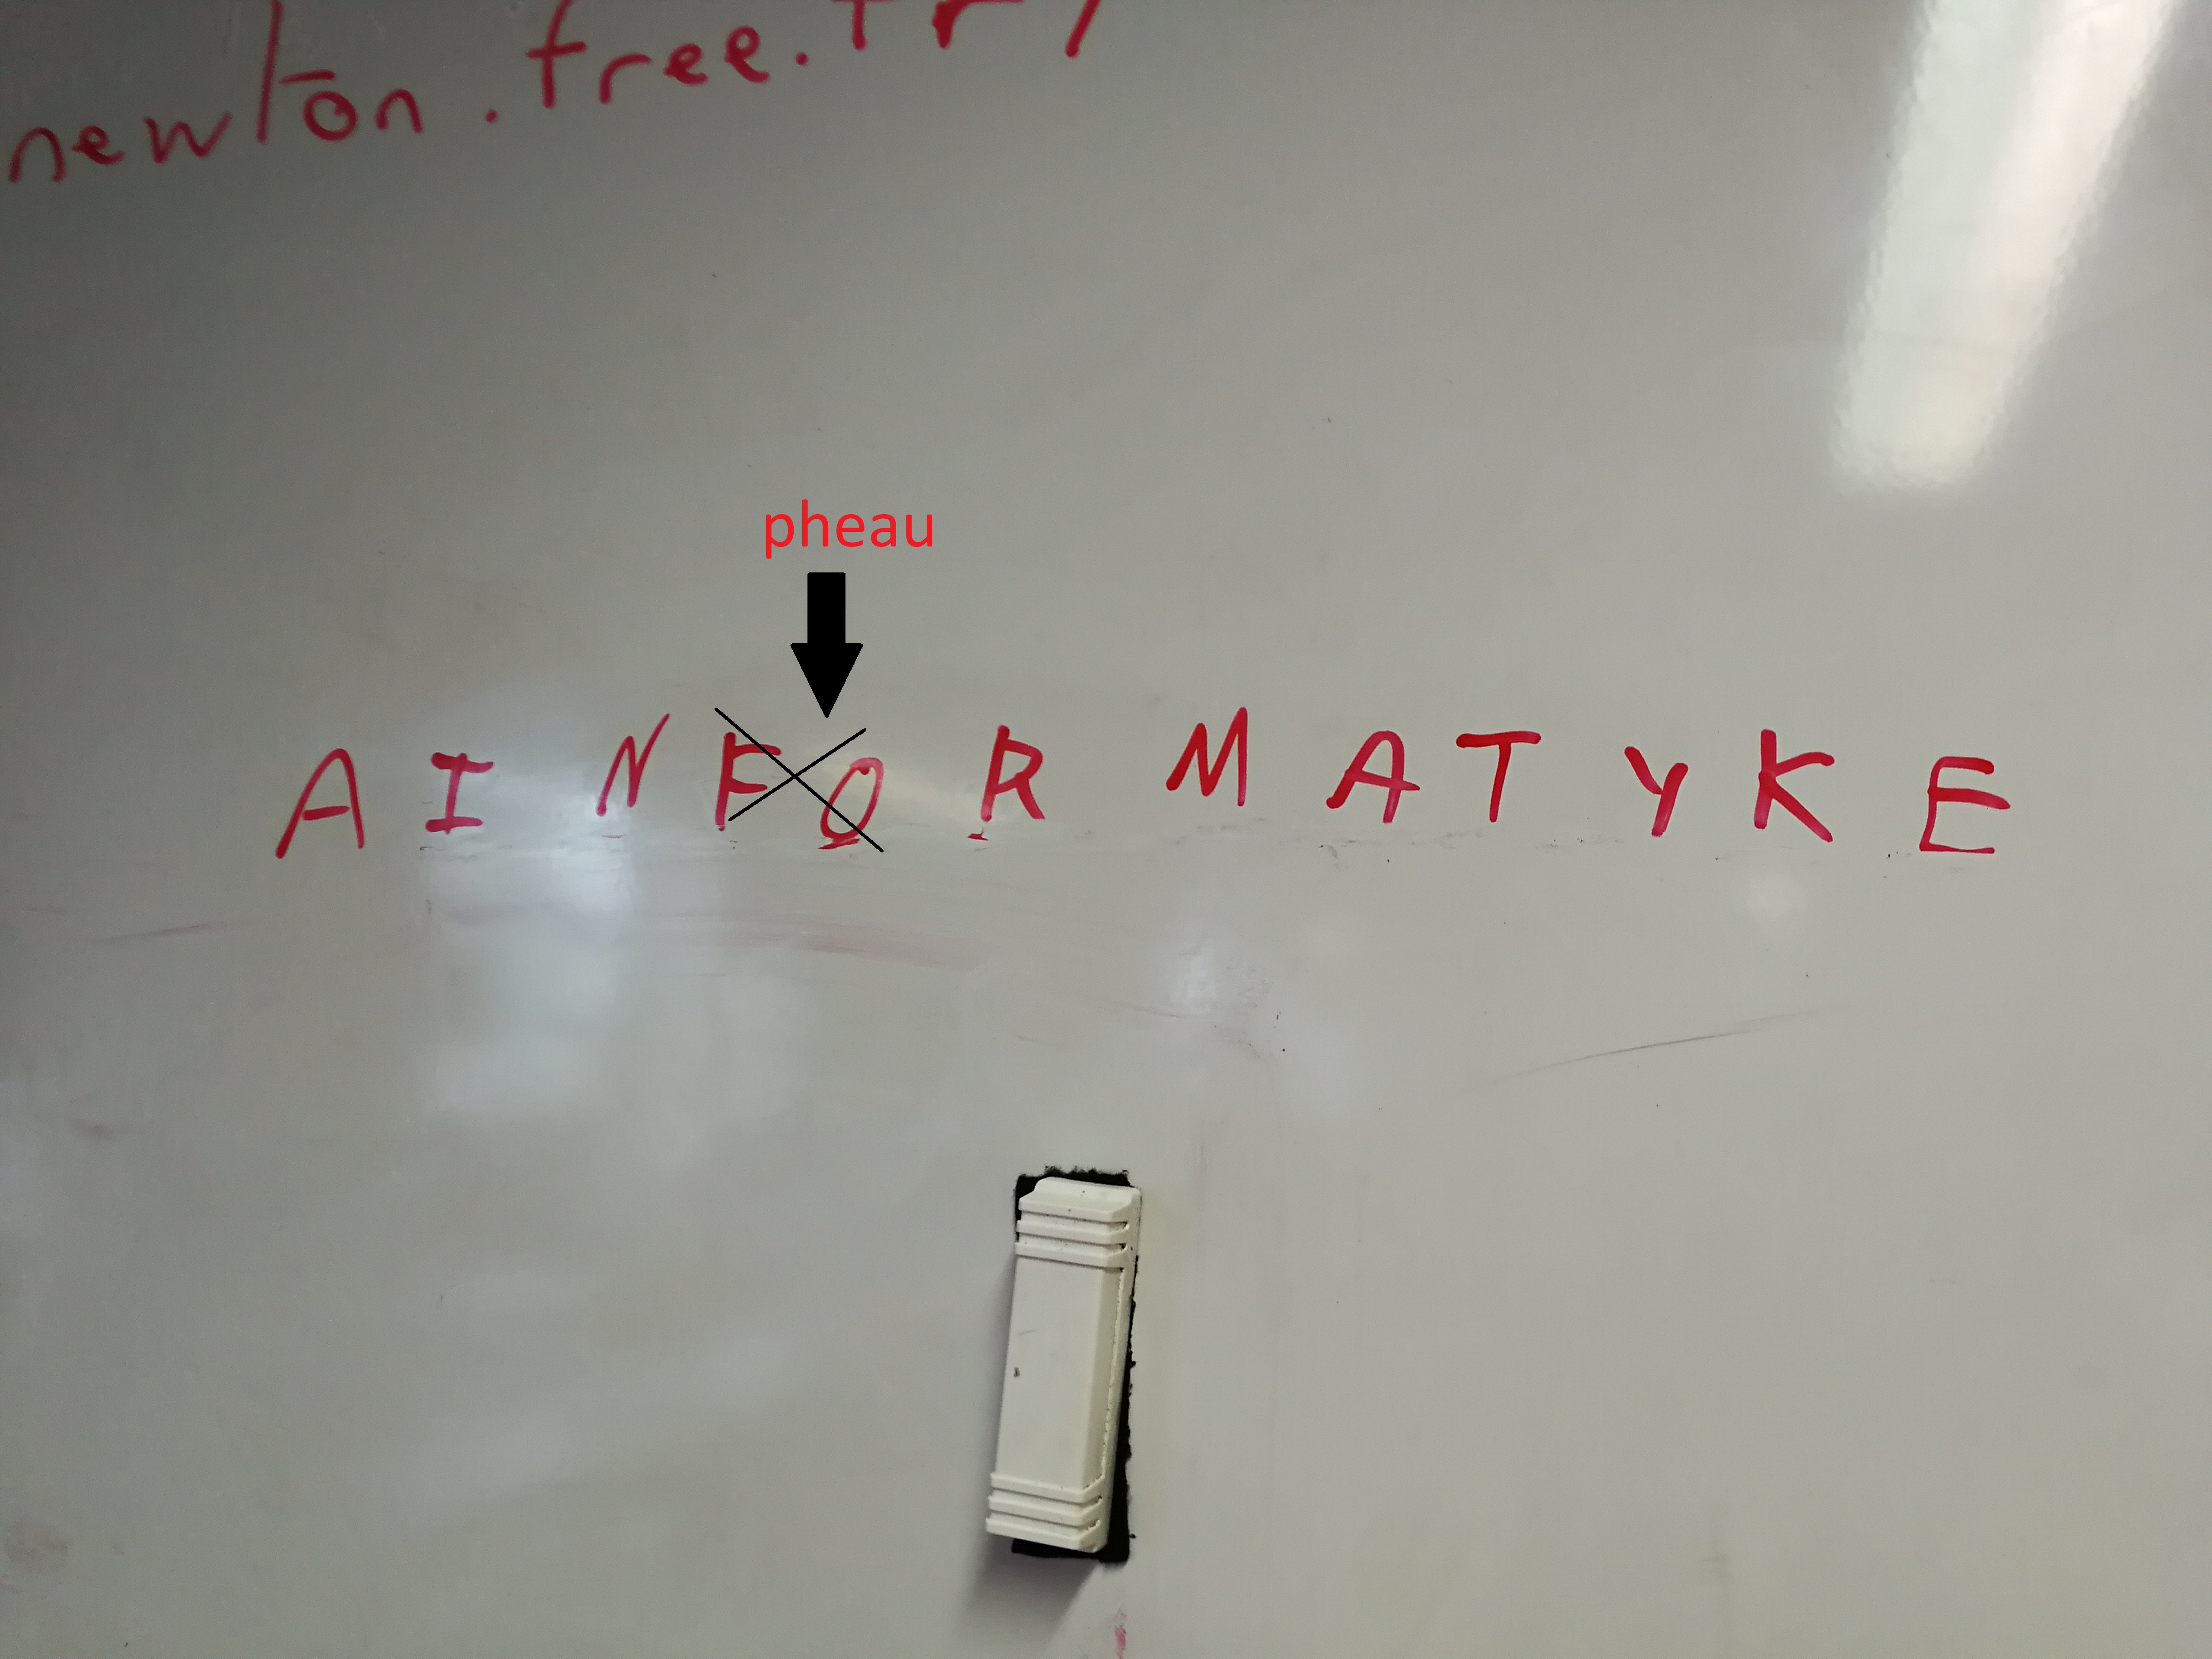 newton.free.fr/
pheau
A I N F O R M A T Y K E